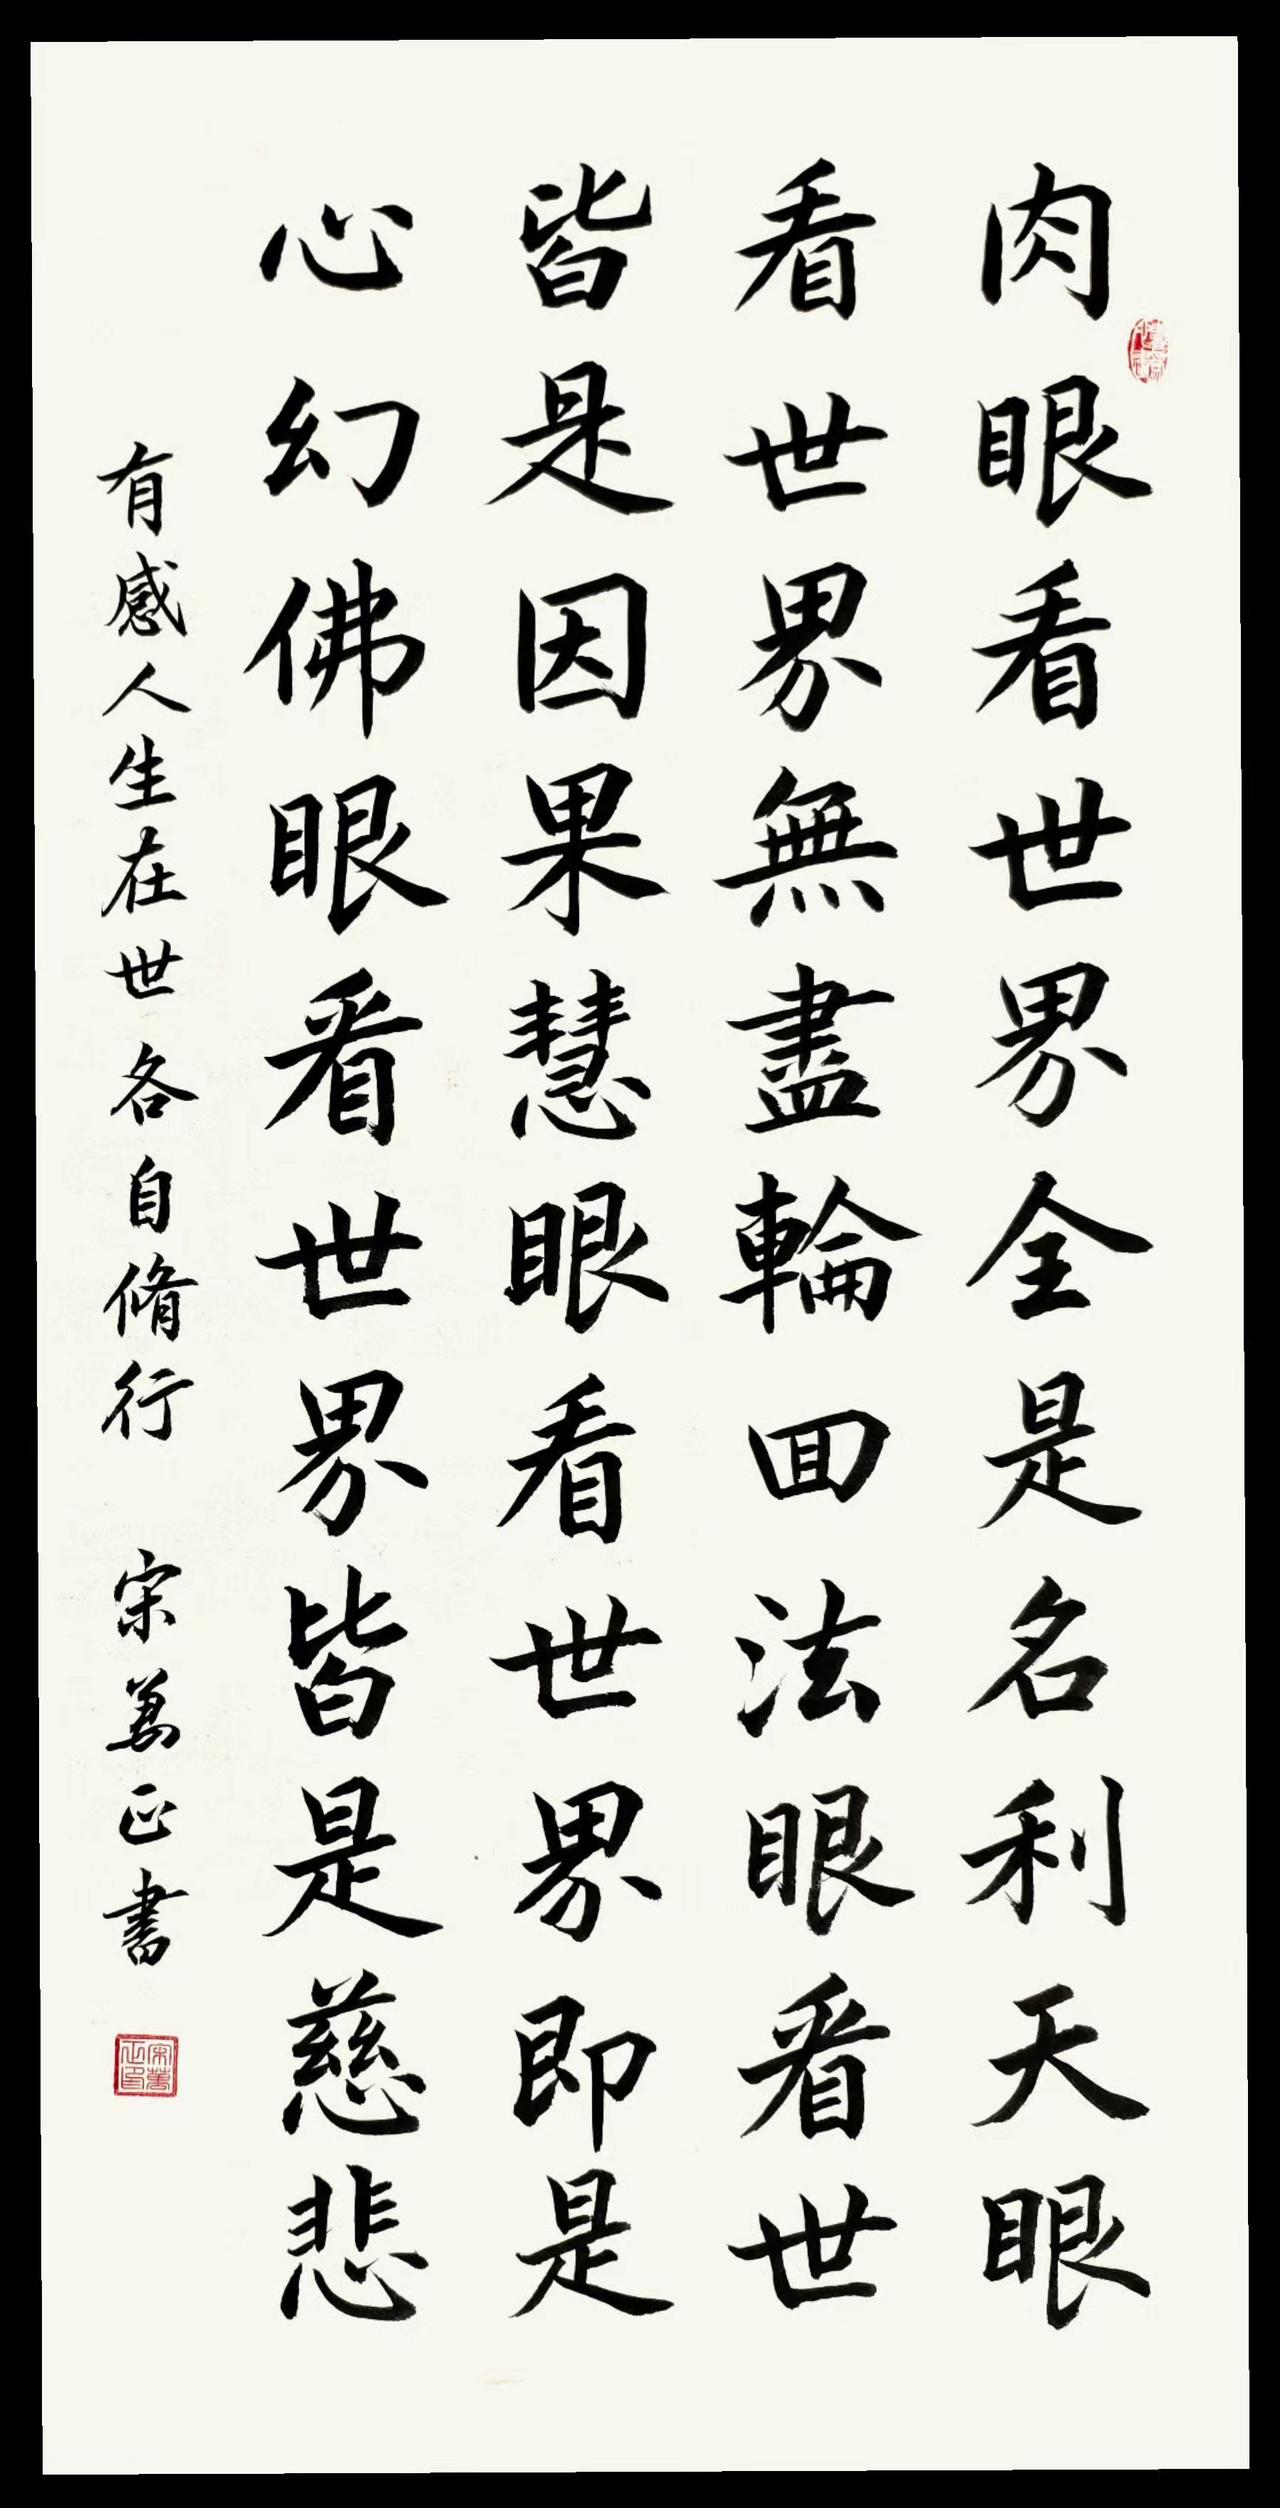 肉眼看世界全是名利天眼
看世界無盡輪回法眼看世
皆是因果慧眼看世界即是
心幻佛眼看世界皆是慈悲
有感人生在世各自脩行 宋萬正書
宋萬正印